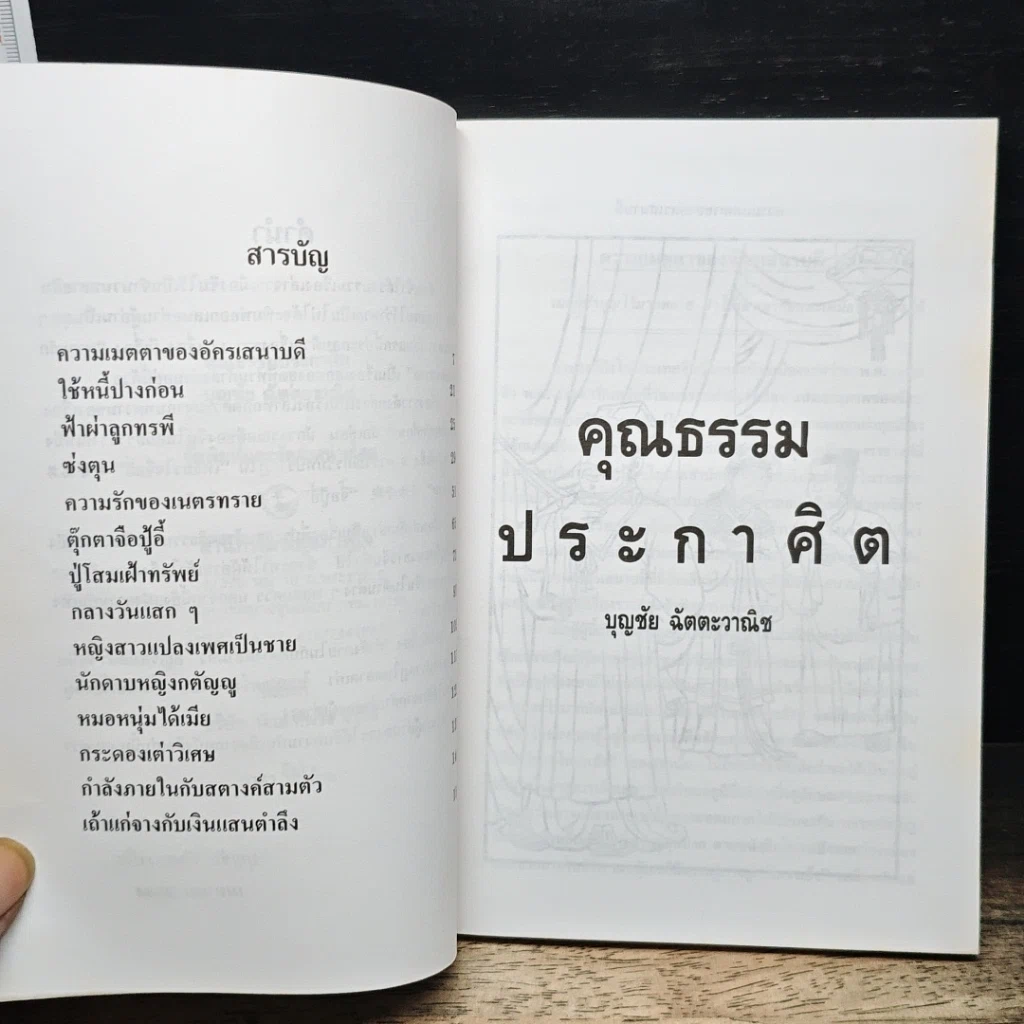 สารบัญ
ความเมตตาของอัครเสนาบดี 7
ใช้หนี้ปางก่อน
ฟ้าผ่าลูกทรพี
ซ่งตุน
ความรักของเนตรทราย
ตุ๊กตาจือปู้อี้
ปู่โสมเฝ้าทรัพย์
กลางวันแสก ๆ
หญิงสาวแปลงเพศเป็นชาย
นักดาบหญิงกตัญญู
หมอหนุ่มได้เมีย
กระดองเต่าวิเศษ
กำลังภายในกับสตางค์สามตัว
เถ้าแก่จางกับเงินแสนตำลึง
คุณธรรม
ประกาศิต
บุญชัย ฉัตตะวาณิช